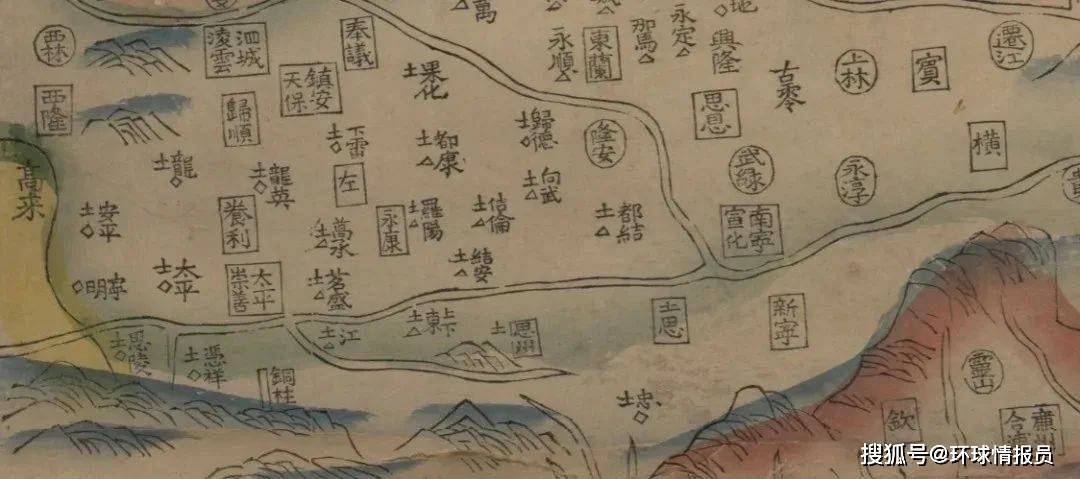 西林
西隆
高来
泗城
凌雲
奉議
鎮安
天保
歸順
土果化
萬
永順
東蘭
那馬
永定
地
興隆
古零
上林
賓
遷江
思恩
土龍
土下雷
土都康
土歸德
隆安
武緣
永淳
橫
土龍英
左
土向武
土安平
養利
土萬承
永康
土羅陽
土佶倫
土都結
南寧
宣化
土結安
明寧
土太平
太平
崇善
土茗盛
土思陵
土憑祥
土江
銅柱
土上下東
土思州
土思
新寧
土忠
靈山
欽
廉州
合浦
搜狐号@环球情报员